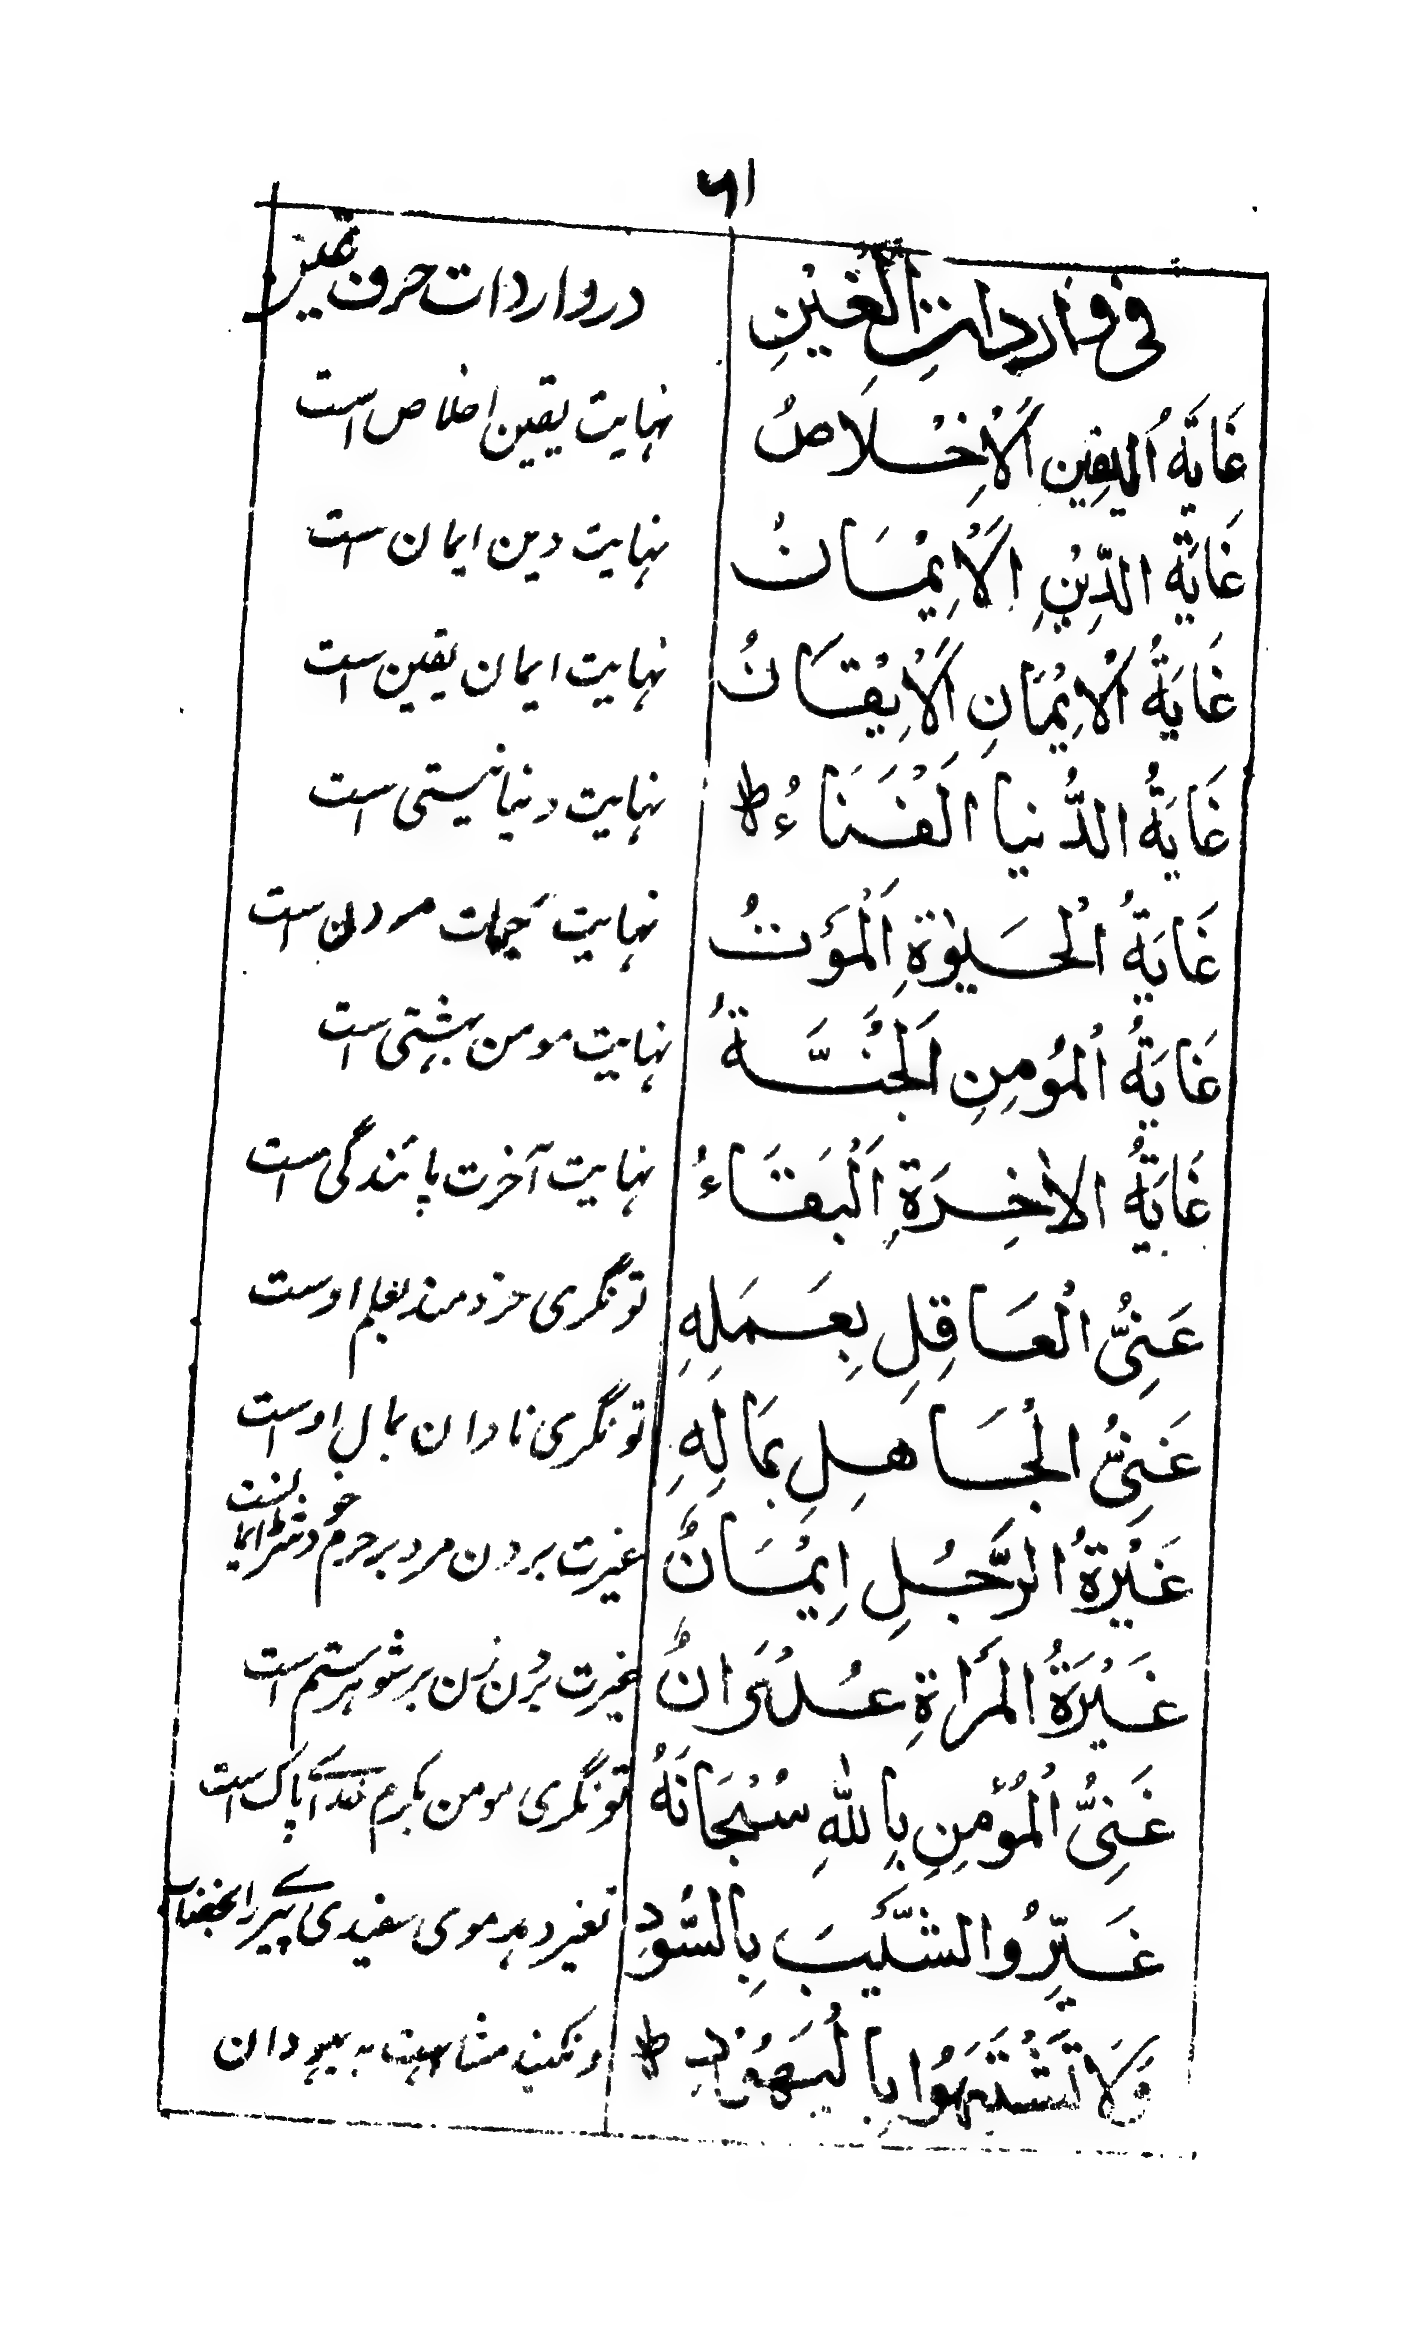 ٦١
فی وارداتِ الْغَیْنِ
در واردات حرف غین
غَایَةُ الْیَقِینِ اَلْاِخْلَاصُ
نهایت یقین اخلاص است
غَایَةُ الدِّیْنِ الْاِیْمَانُ
نهایت دین ایمان است
غَایَةُ الْاِیْمَانِ اَلْاِیْقَانُ
نهایت ایمان یقین است
غَایَةُ الدُّنیا اَلْفَنَاءُ ط
نهایت دنیا نیستی است
غَایَةُ الْحَیٰوةِ اَلْمَوْتُ
نهایت حیات مردن است
غَایَةُ الْمُومِنِ اَلْجَنَّةُ
نهایت مومن بهشتی است
غَایَةُ الاٰخِرَةِ اَلْبَقَاءُ
نهایت آخرت پائندگی است
غَنِیُّ الْعَاقِلِ بِعَمَلِهِ
تونگری خردمند بعلم اوست
غَنِیُّ الْجَاهِلِ بِمَالِهِ
تونگری نادان بمال اوست
غَیْرَةُ الرَّجُلِ اِیْمَانٌ
غیرت بردن مرد بر حرم خود
غَیْرَةُ الْمَرْاَةِ عُدْوَانٌ
غیرت بردن زن بر شوهر ستم است
غَنِیُّ الْمُؤْمِنِ بِاللّٰهِ سُبْحَانَهُ
تونگری مومن بکرم خدائے پاک است
غَیِّرُوا الشَّیْبَ بِالسَّودِ
تغیر دهد موی سفیدی پیر را بخضاب
وَلَا تَشْتَبِهُوا بِالْیَهُوْدِ ط
و نکنید مشابهت به یهودان